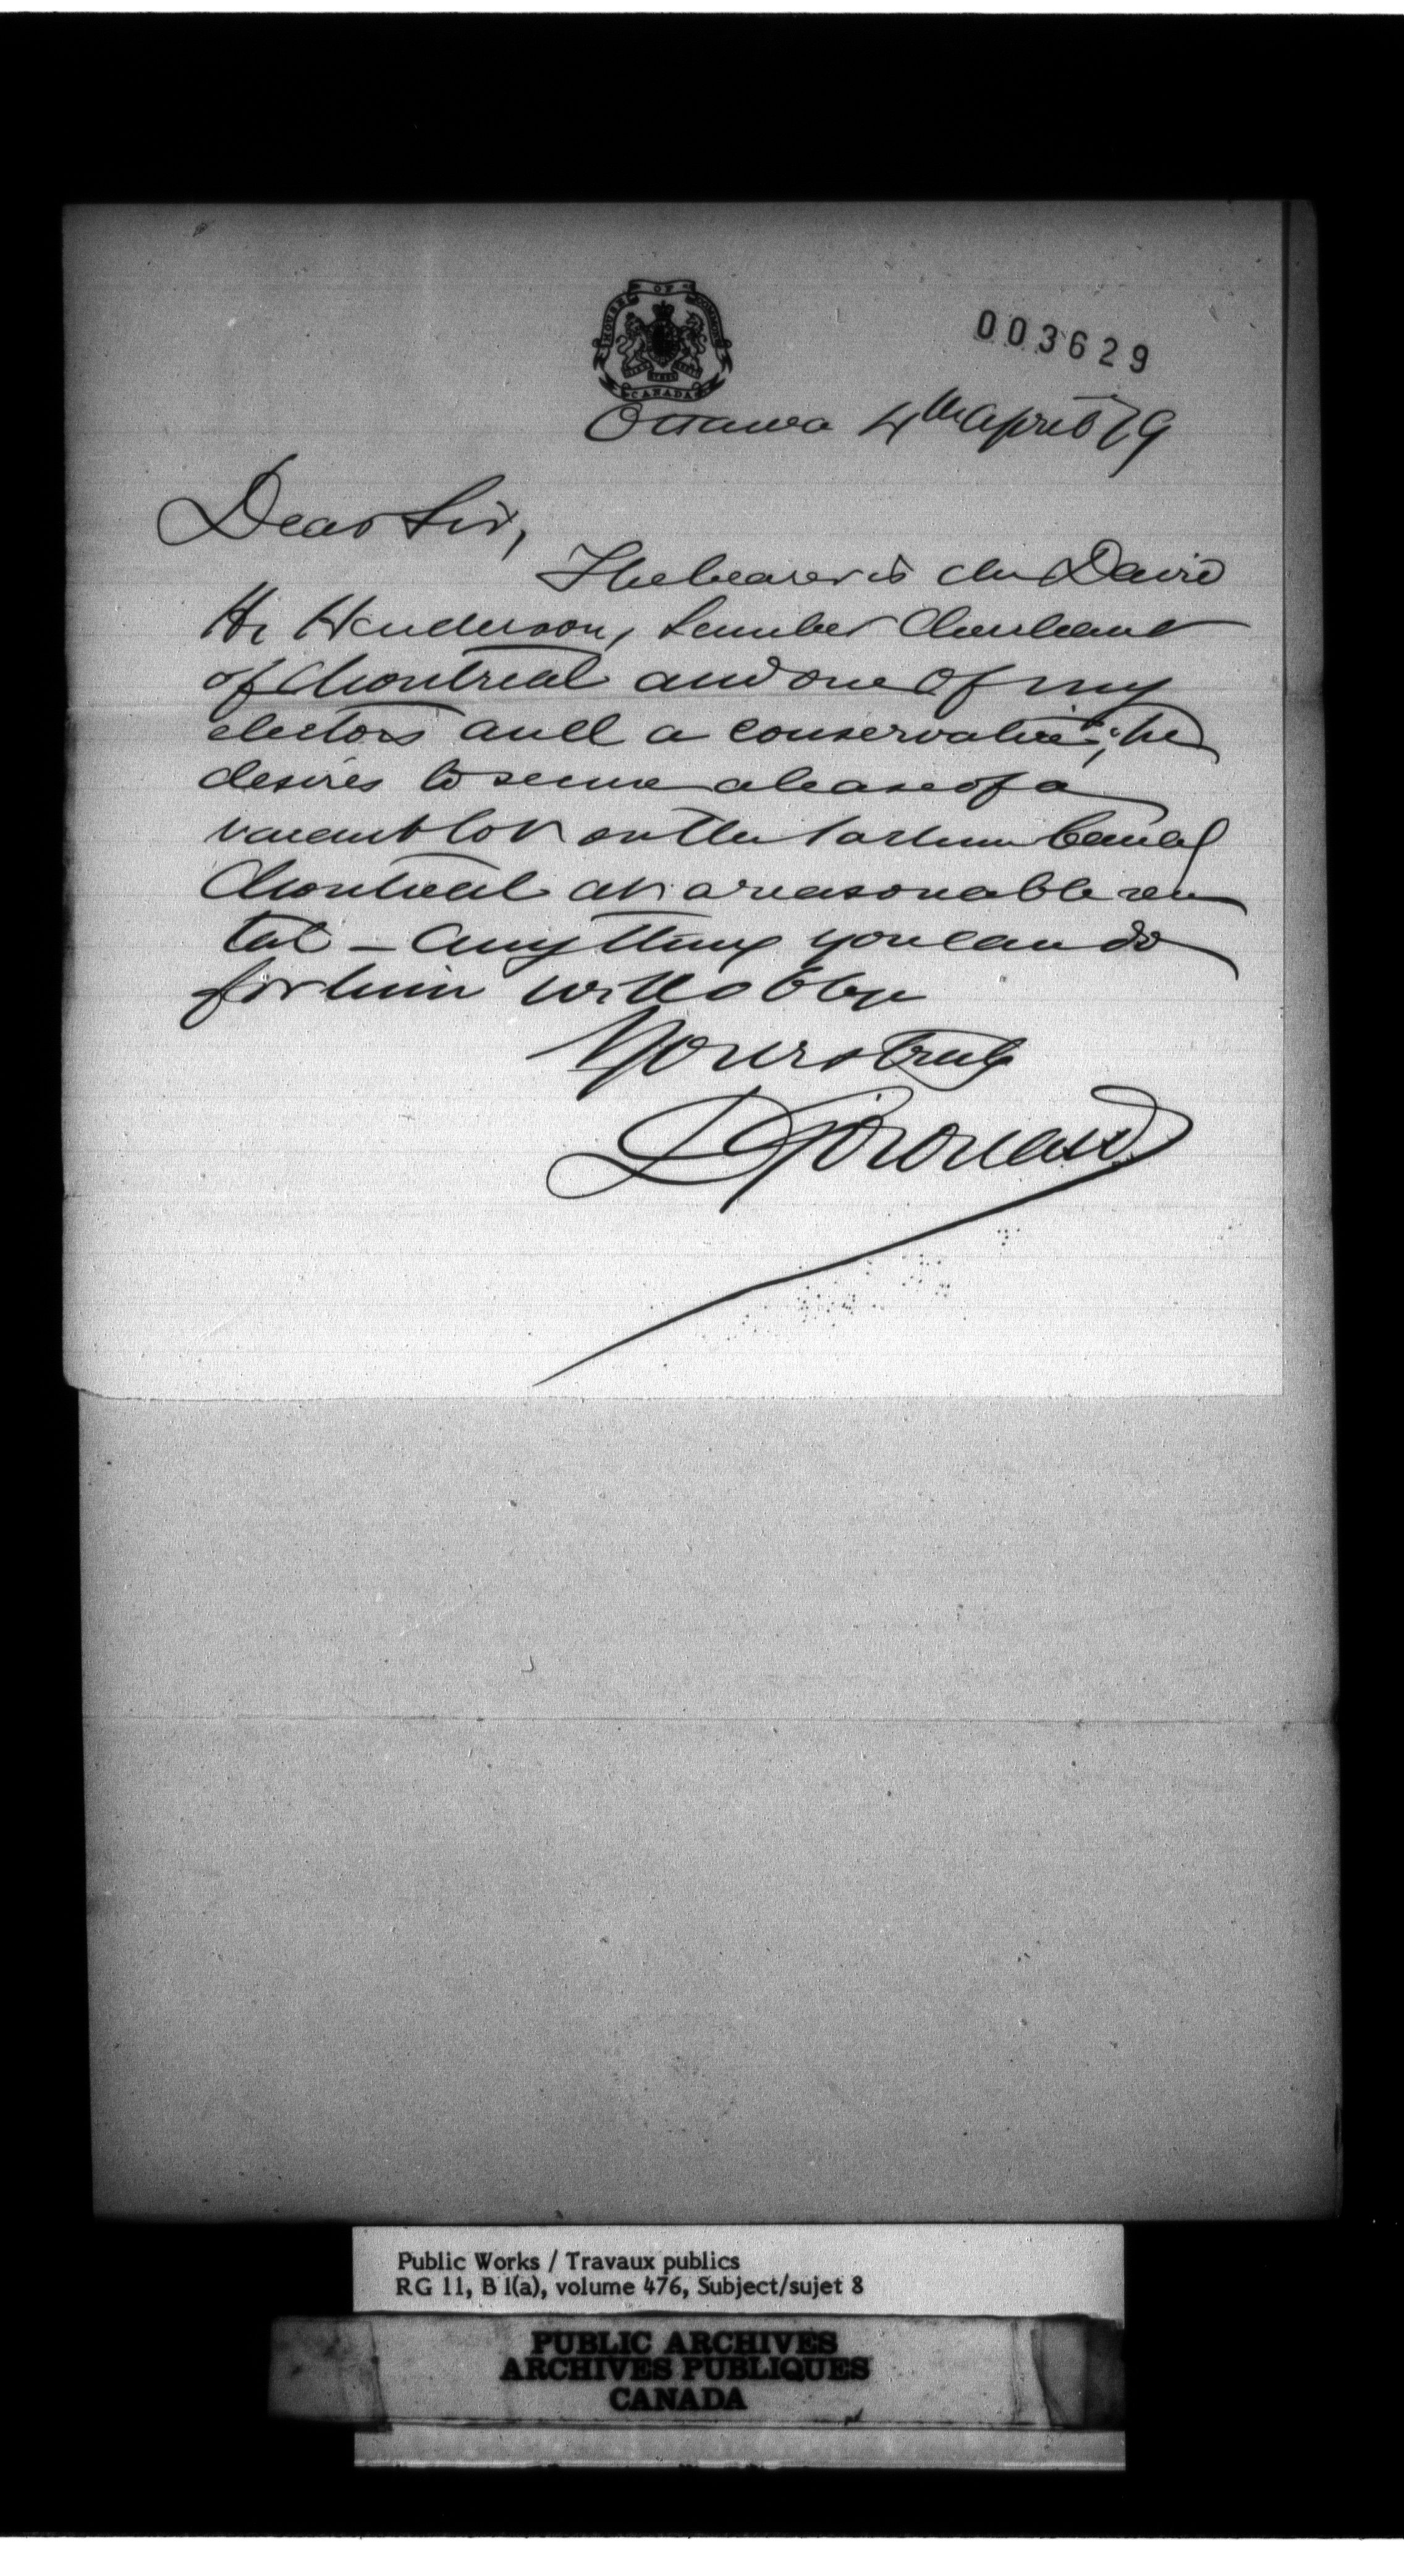 HOUSE OF COMMONS
CANADA
003629
Ottawa 4th April 79
Dear Sir,
The bearer is Mr David
H. Henderson, Lumber Merchant
of Montreal and one of my
electors and a conservative; he
desires to secure a lease of a
vacant lot on the Lachine Canal
Montreal at a reasonable ren
tal – Anything you can do
for him will oblige
Yours truly
D Girouard
Public Works / Travaux publics
RG 11, B 1(a), volume 476, Subject/sujet 8
PUBLIC ARCHIVES
ARCHIVES PUBLIQUES
CANADA